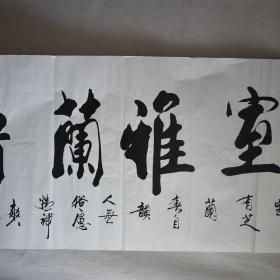 室雅蘭
室有芝蘭春自韻人無俗慮神爽